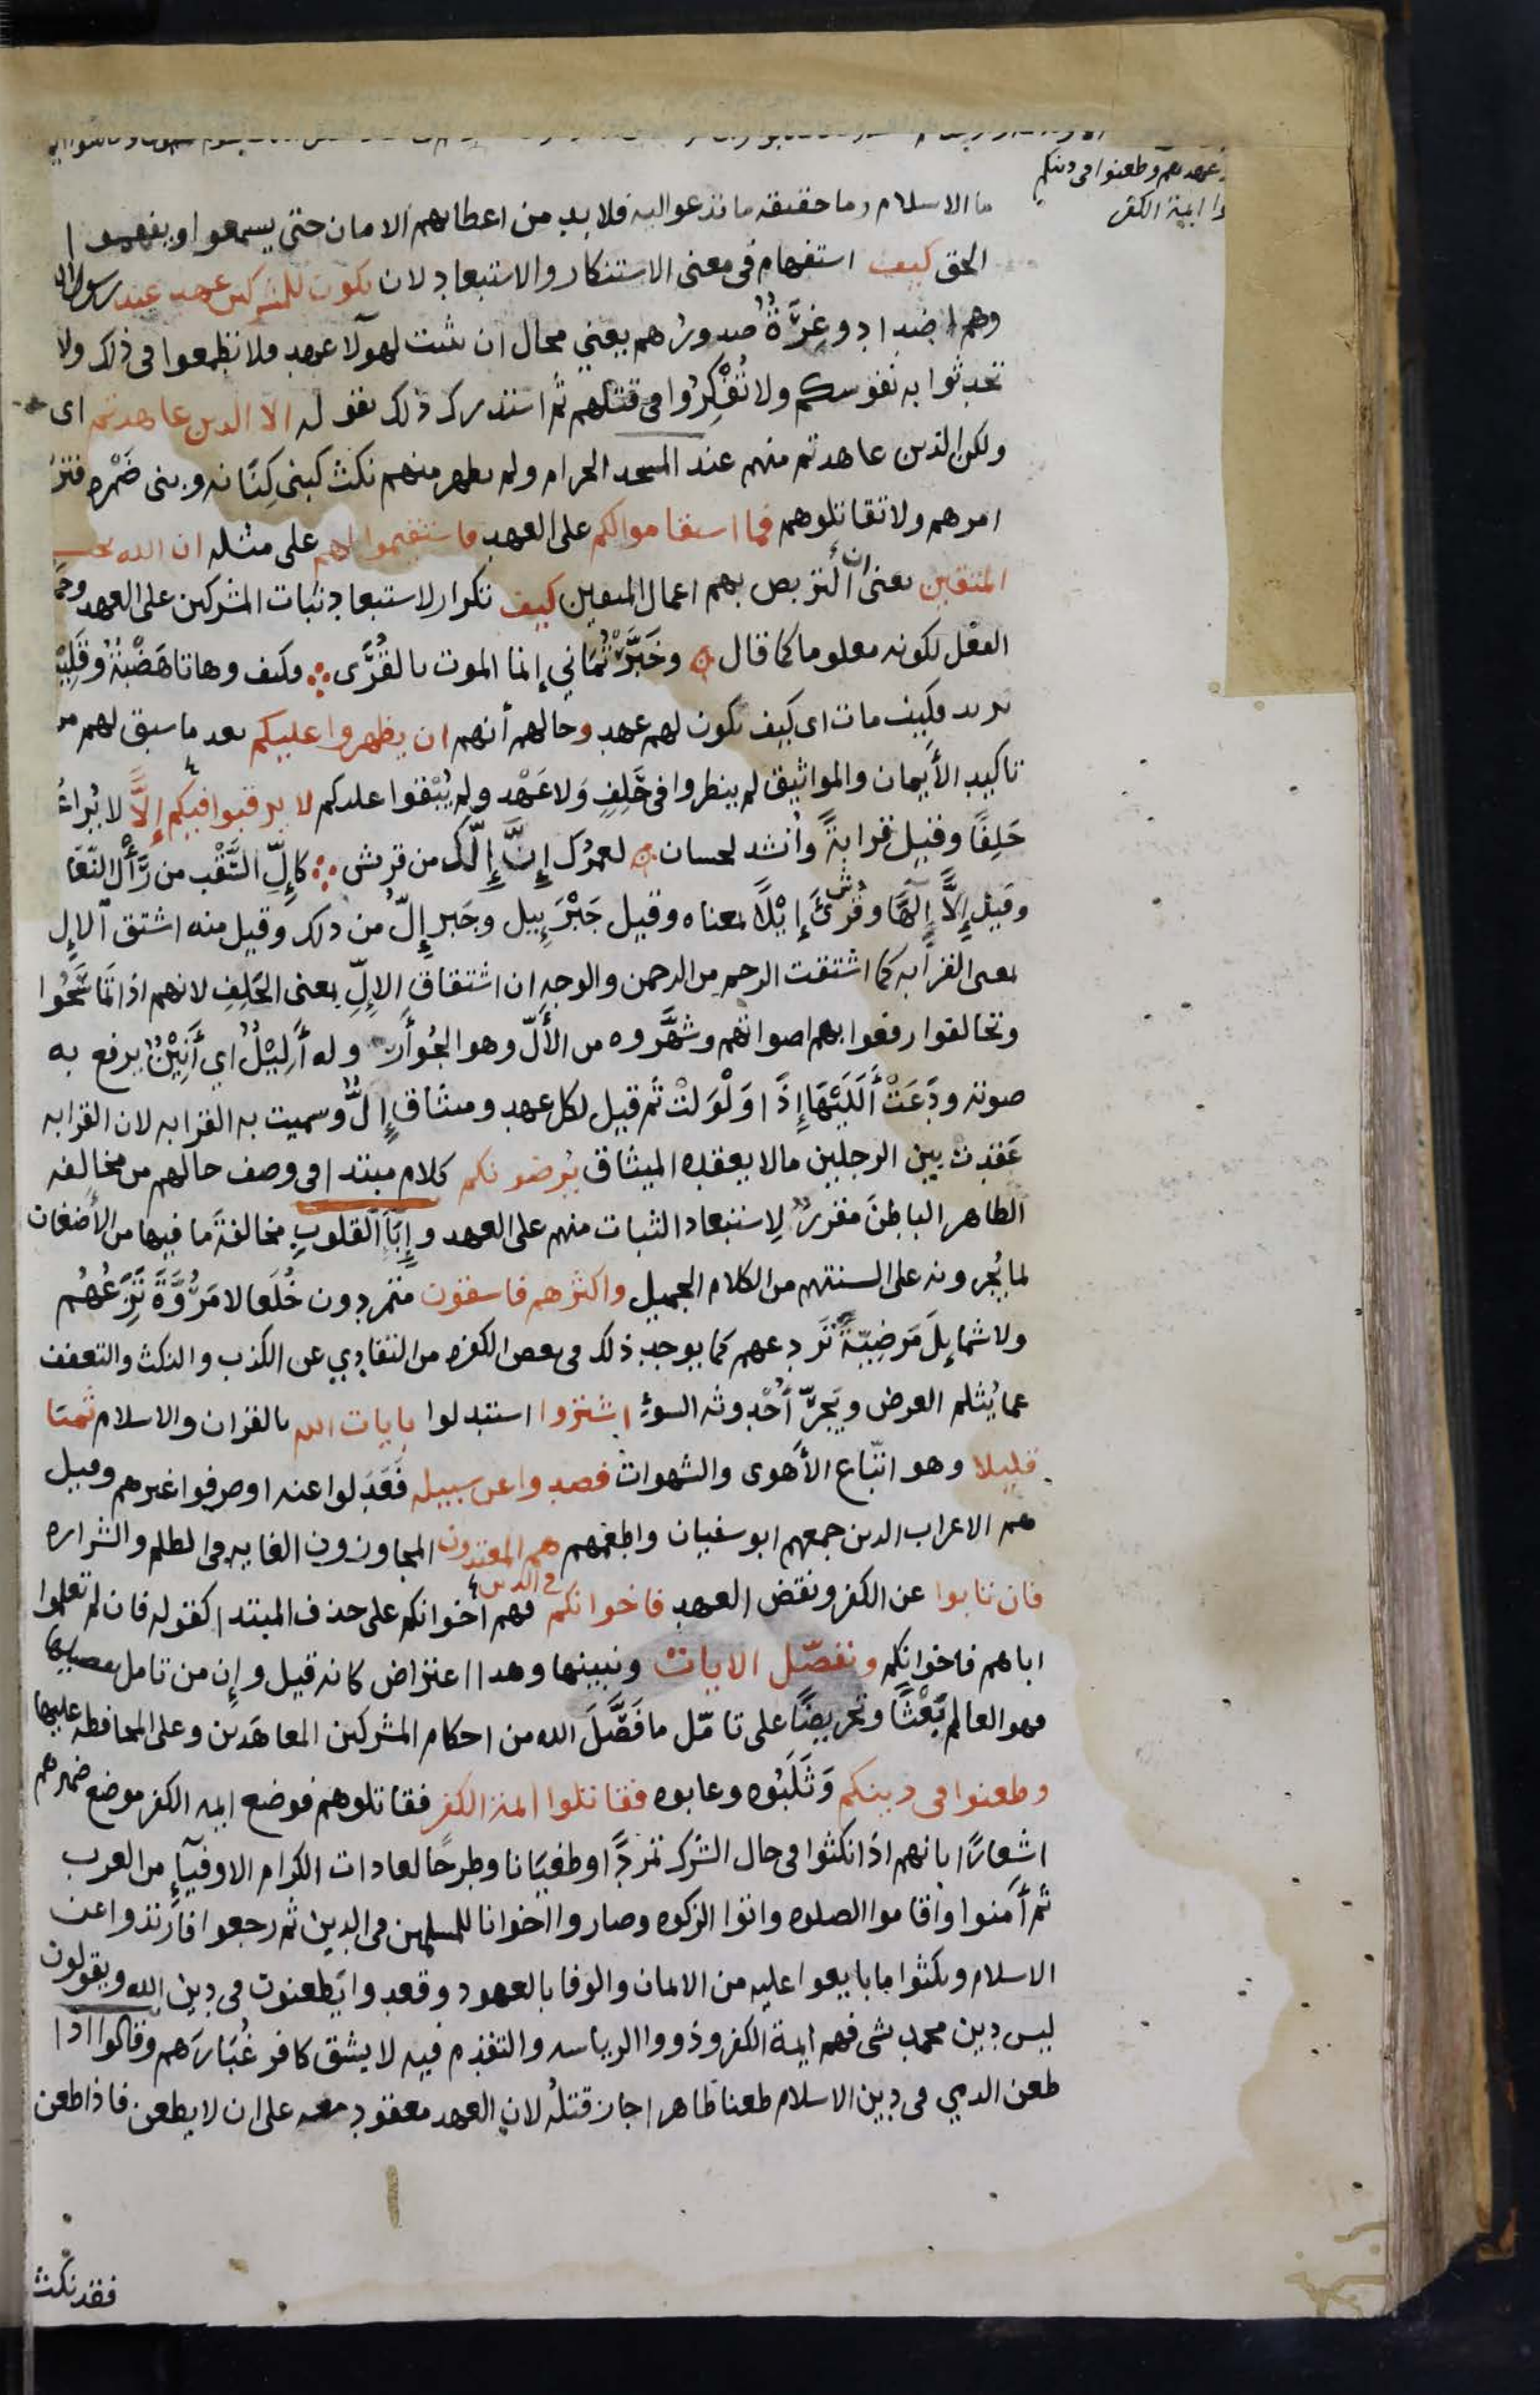 عهدهم وطعنوا فى دينكم
ايمة الكفر
ما الاسلام وما حقيقه ما تدعوا اليه فلا بد من اعطايهم الامان حتى يسمعوا ويفهموا
الحق كيف استفهام فى معنى الاستنكار والاستبعاد لان يكون للمشركين عهد عند رسول الله
وهم اضداد وغِرَّةٌ صدورُهم يعني محال ان يثبت لهولا عهد فلا تطمعوا فى ذلك ولا
تحدثوا به نفوسكم ولا تُفَكِّرُوا فى قتلهم ثم استدرك ذلك بقوله الا الذين عاهدتم اى
ولكن الذين عاهدتم منهم عند المسجد الحرام ولم يظهر منهم نكث كبنى كِنَانه وبنى ضَمْره فتربَّصوا
امرهم ولا تقاتلوهم فما استقاموا لكم على العهد فاستقيموا لهم على مثله ان الله يحب
المتقين يعنى ان التربص بهم اعمال المتقين كيف تكرار لاستبعاد ثبات المشركين على العهد وحذف
الفعل لكونه معلوما كما قال وخَبَّرْتُمَانِي إنما الموت بالقُرَى فكيف وهاتا هَضْبَةٌ وقَلِيْبُ
يريد فكيف مات اى كيف يكون لهم عهد وحالهم أنهم ان يظهروا عليكم بعد ما سبق لهم من
تاكيد الأيمان والمواثيق لم ينظروا فى حَلِفٍ وَلا عَهْد ولم يُبْقوا عليكم لا يرقبوا فيكم إِلًّا لا يُراعُوا
حَلِفًا وقيل قرابةً وأنشد لحسان لعمرُك إِنَّ إِلَّك من قريش كإِلِّ السَّقْب من رَأْلِ النَّعَام
وقيل إِلًّا إِلَهًا وقُرِئَ إِيْلًا بمعناه وقيل جَبْرَئِيل وجَبرَإِلّ من ذلك وقيل منه اشتق الإِل
بمعنى القرابه كما اشتقت الرحم من الرحمن والوجه ان اشتقاق الإِلِّ بمعنى الحَلِفِ لانهم اذا تَمَاسَحُوا
وتحالفوا رفعوا به اصواتهم وشَهَّروه من الأَلّ وهو الجُؤَار وله أَلِيْلٌ اي أَنِيْنٌ يرفع به
صوته ودَعَتْ أَلَلَيْهَا إِذَا وَلْوَلَتْ ثم قيل لكل عهد وميثاق إِلٌّ وسميت به القرابه لان القرابه
عَقَدَتْ بين الرجلين مالا يعقده الميثاق يُرضونكم كلام مبتدا فى وصف حالهم من مخالفه
الظاهر الباطنَ مقرِّرٌ لِاستبعاد الثبات منهم على العهد وإِبَآءُ القلوبِ مخالفةُ ما فيها من الأَضغان
لما يُجرونه على السنتهم من الكلام الجميل واكثرهم فاسقون متمردون خُلَعَا لا مُرُوَّةَ تَزَعُهُم
ولا شمايِلَ مَرْضِيّةً تَردعهم كما يوجد ذلك فى بعض الكفره من التفادي عن الكذب والنكث والتعفف
عما يُثلم العرض ويَجرُّ أُحْدوثه السوءِ اشتروا استبدلوا بايات الله بالقران والاسلام ثمنا
قليلا وهو اتّباع الأَهوى والشهوات فصدوا عن سبيله فَعَدَلوا عنه او صرفوا غيرهم وقيل
هم الاعراب الذين جمعهم ابو سفيان واطعمهم هم المعتدون المجاوزون الغايه فى الظلم والشراره
فان تابوا عن الكفر ونقض العهد فاخوانكم فى الدين فهم اخوانكم على حذف المبتدا كقوله فان لم تعلموا
اباهم فاخوانكم ونفصّل الايات ونبينها وهذا اعتراض كانه قيل وإِن من تامل تفصيلها
فهو العالم بَعْثًا وتحريضًا على تامّل ما فَصَّلَ الله من احكام المشركين المعاهَدين وعلى المحافظه عليها
وطعنوا فى دينكم وَثَلَبُوه وعابوه فقاتلوا ايمة الكفر فقاتلوهم فوضع ايمه الكفر موضع ضميرهم
اشعارًا بانهم اذا نكثوا فى حال الشرك تمرُّدًا وطغيَانا وطرحًا لعادات الكرام الاوفيآءِ من العرب
ثم أَمَنوا وأقاموا الصلوه واتوا الزكوه وصاروا اخوانا للمسلمين فى الدين ثم رجعوا فارتدوا عن
الاسلام ونكثوا ما بايعوا عليه من الايمان والوفا بالعهود وقعدوا يَطعنون فى دين الله ويقولون
ليس دين محمد بشى فهم ايمة الكفر وذووا الرياسه والتقدم فيه لا يشق كافر غُبَارَهم وقالوا اذا
طعن الذمي فى دين الاسلام طعنا ظاهرا جاز قتلُه لان العهد معقود معه على ان لا يطعن فاذا طعن
فقد نكث